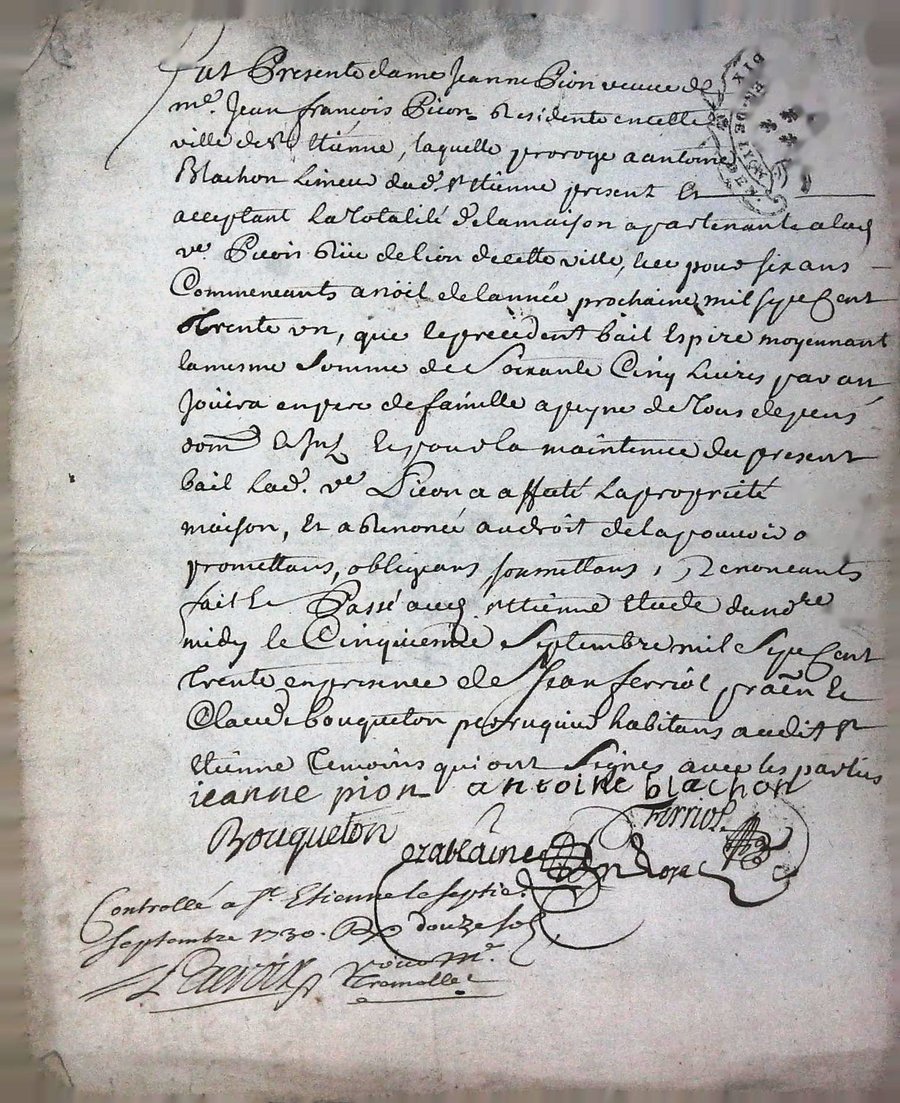 Fut Presente dame Jeanne Pion veuve de
me. Jean françois Picon Residente en cette
ville de st Etienne, laquelle proroge a antoine
Blachon Limeur dud. st Etienne present Et
acceptant La totalité de la maison apartenante a lad
ve. Picon Rüe de lion de cette ville, Ice pour six ans
Commencants a noël de l'année prochaine mil sept Cent
trente un, que le precedent bail Expire moyennant
la mesme Somme de Soixante Cinq Livres par an
Jouira en pere de famille a peyne de tous depens
dom et Int Et pour la maintenue du present
bail Lad. ve Picon a affecté La propriété
maison, Et a Renoncé au droit de la pouvoir
promettans, obligeans soumettans, Renonceants
fait Et Passé aud st Etienne Etude dundre
midy le Cinquieme Septembre mil Sept Cent
trente en presence de Jean ferriol praën Et
Claude bouqueton perruquier habitans audit st
Etienne temoins qui ont Signés avec les parties
jeanne pion antoine blachon
Bouqueton Ferriol
Controllé a St. Etienne le septie.
Septembre 1730. Rx douze sols
Lacroix